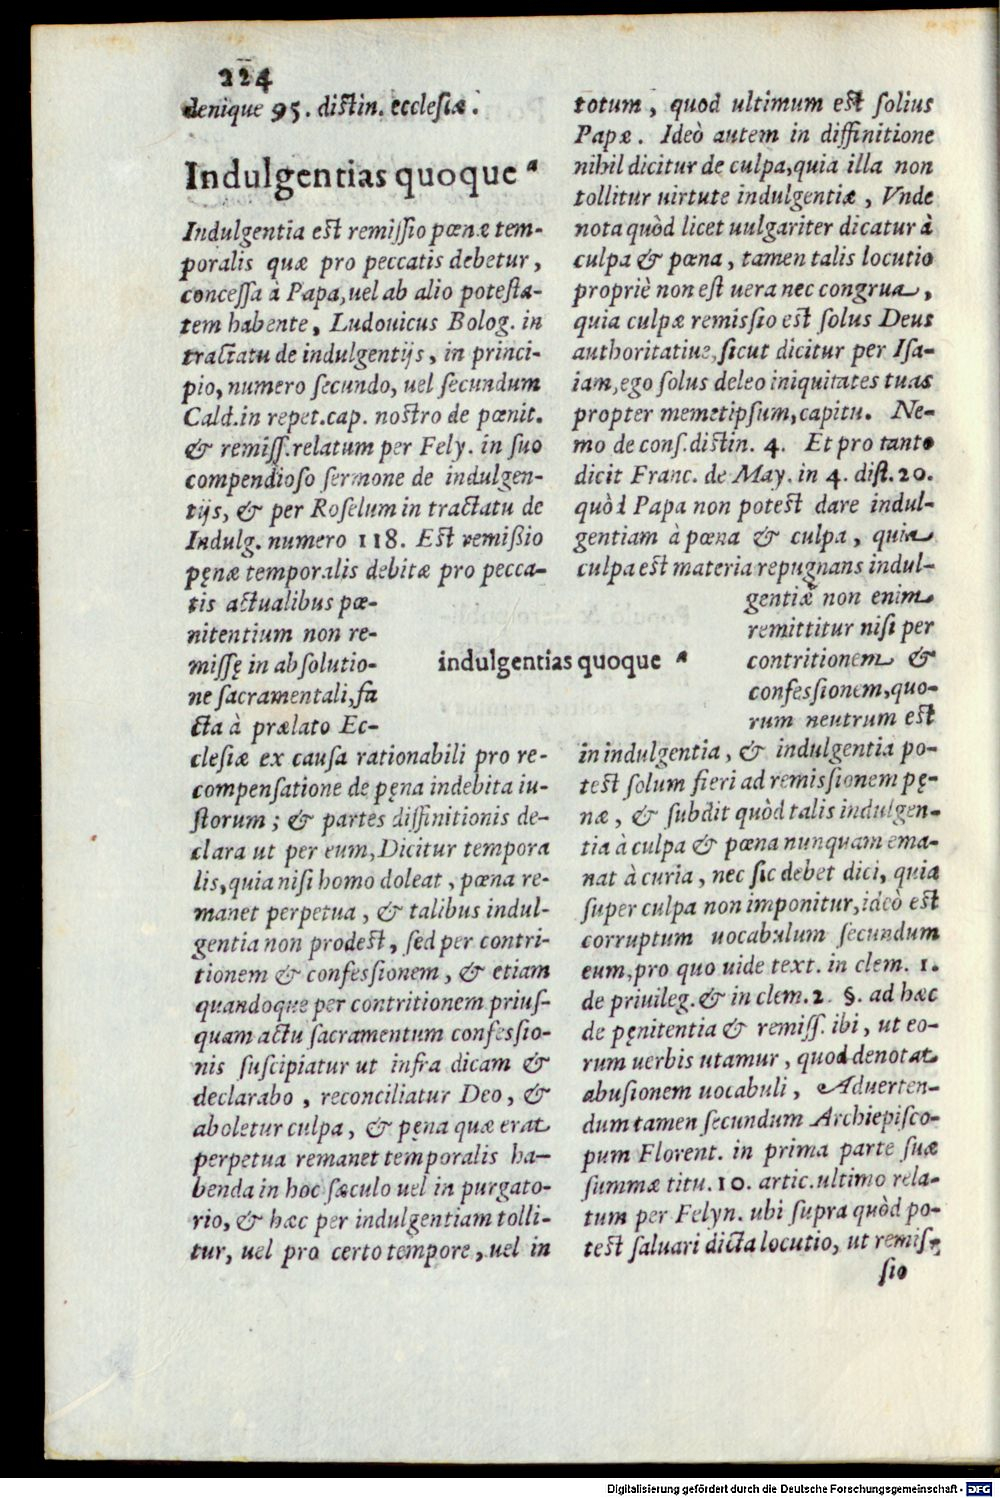 224
denique 95. distin. ecclesiæ.
Indulgentias quoque ᵃ
Indulgentia est remissio pœnæ tem-
poralis quæ pro peccatis debetur,
concessa à Papa, uel ab alio potesta-
tem habente, Ludouicus Bolog. in
tractatu de indulgentijs, in princi-
pio, numero secundo, uel secundum
Cald. in repet. cap. nostro de pœnit.
& remiss. relatum per Fely. in suo
compendioso sermone de indulgen-
tijs, & per Roselum in tractatu de
Indulg. numero 118. Est remissio
pęnæ temporalis debitæ pro pecca-
tis actualibus pœ-
nitentium non re-
missę in absolutio-
ne sacramentali, fa
cta à prælato Ec-
clesiæ ex causa rationabili pro re-
compensatione de pęna indebita iu-
storum; & partes diffinitionis de-
clara ut per eum, Dicitur tempora
lis, quia nisi homo doleat, pœna re-
manet perpetua, & talibus indul-
gentia non prodest, sed per contri-
tionem & confessionem, & etiam
quandoque per contritionem prius-
quam actu sacramentum confessio-
nis suscipiatur ut infra dicam &
declarabo, reconciliatur Deo, &
aboletur culpa, & pęna quæ erat
perpetua remanet temporalis ha-
benda in hoc sæculo uel in purgato-
rio, & hæc per indulgentiam tolli-
tur, uel pro certo tempore, uel in
indulgentias quoque ᵃ
totum, quod ultimum est solius
Papæ. Ideò autem in diffinitione
nihil dicitur de culpa, quia illa non
tollitur uirtute indulgentiæ, Vnde
nota quòd licet uulgariter dicatur à
culpa & pœna, tamen talis locutio
propriè non est uera nec congrua,
quia culpæ remissio est solus Deus
authoritatiue, sicut dicitur per Isa-
iam, ego solus deleo iniquitates tuas
propter memetipsum, capitu. Ne-
mo de cons. distin. 4. Et pro tanto
dicit Franc. de May. in 4. dist. 20.
quòd Papa non potest dare indul-
gentiam à pœna & culpa, quia
culpa est materia repugnans indul-
gentiæ non enim
remittitur nisi per
contritionem &
confessionem, quo-
rum neutrum est
in indulgentia, & indulgentia po-
test solum fieri ad remissionem pę-
næ, & subdit quòd talis indulgen-
tia à culpa & pœna nunquam ema-
nat à curia, nec sic debet dici, quia
super culpa non imponitur, ideò est
corruptum uocabulum secundum
eum, pro quo uide text. in clem. 1.
de priuileg. & in clem. 2. §. ad hæc
de pęnitentia & remiss. ibi, ut eo-
rum uerbis utamur, quod denotat
abusionem uocabuli, Aduerten-
dum tamen secundum Archiepisco-
pum Florent. in prima parte suæ
summæ titu. 10. artic. ultimo rela-
tum per Felyn. ubi supra quòd po-
test saluari dicta locutio, ut remis-
sio
Digitalisierung gefördert durch die Deutsche Forschungsgemeinschaft - DFG